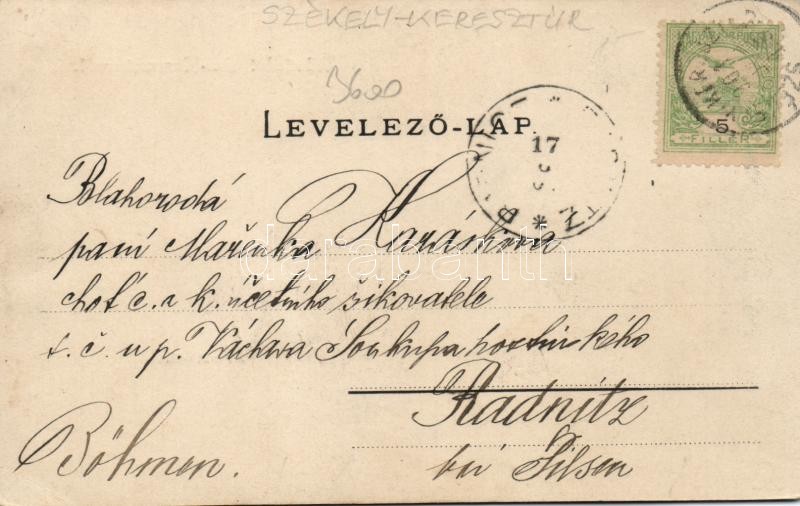 SZÉKELY-KERESZTÚR
3600
LEVELEZŐ-LAP
17
MAGYAR KIR. POSTA
5
FILLÉR
Blahorodá
paní Mařenka Haráskova
choť c. a k. účetního šikovatele
t. č. u p. Václava Soukupa hostinského
Radnitz
bei Pilsen
Böhmen.
darabanth